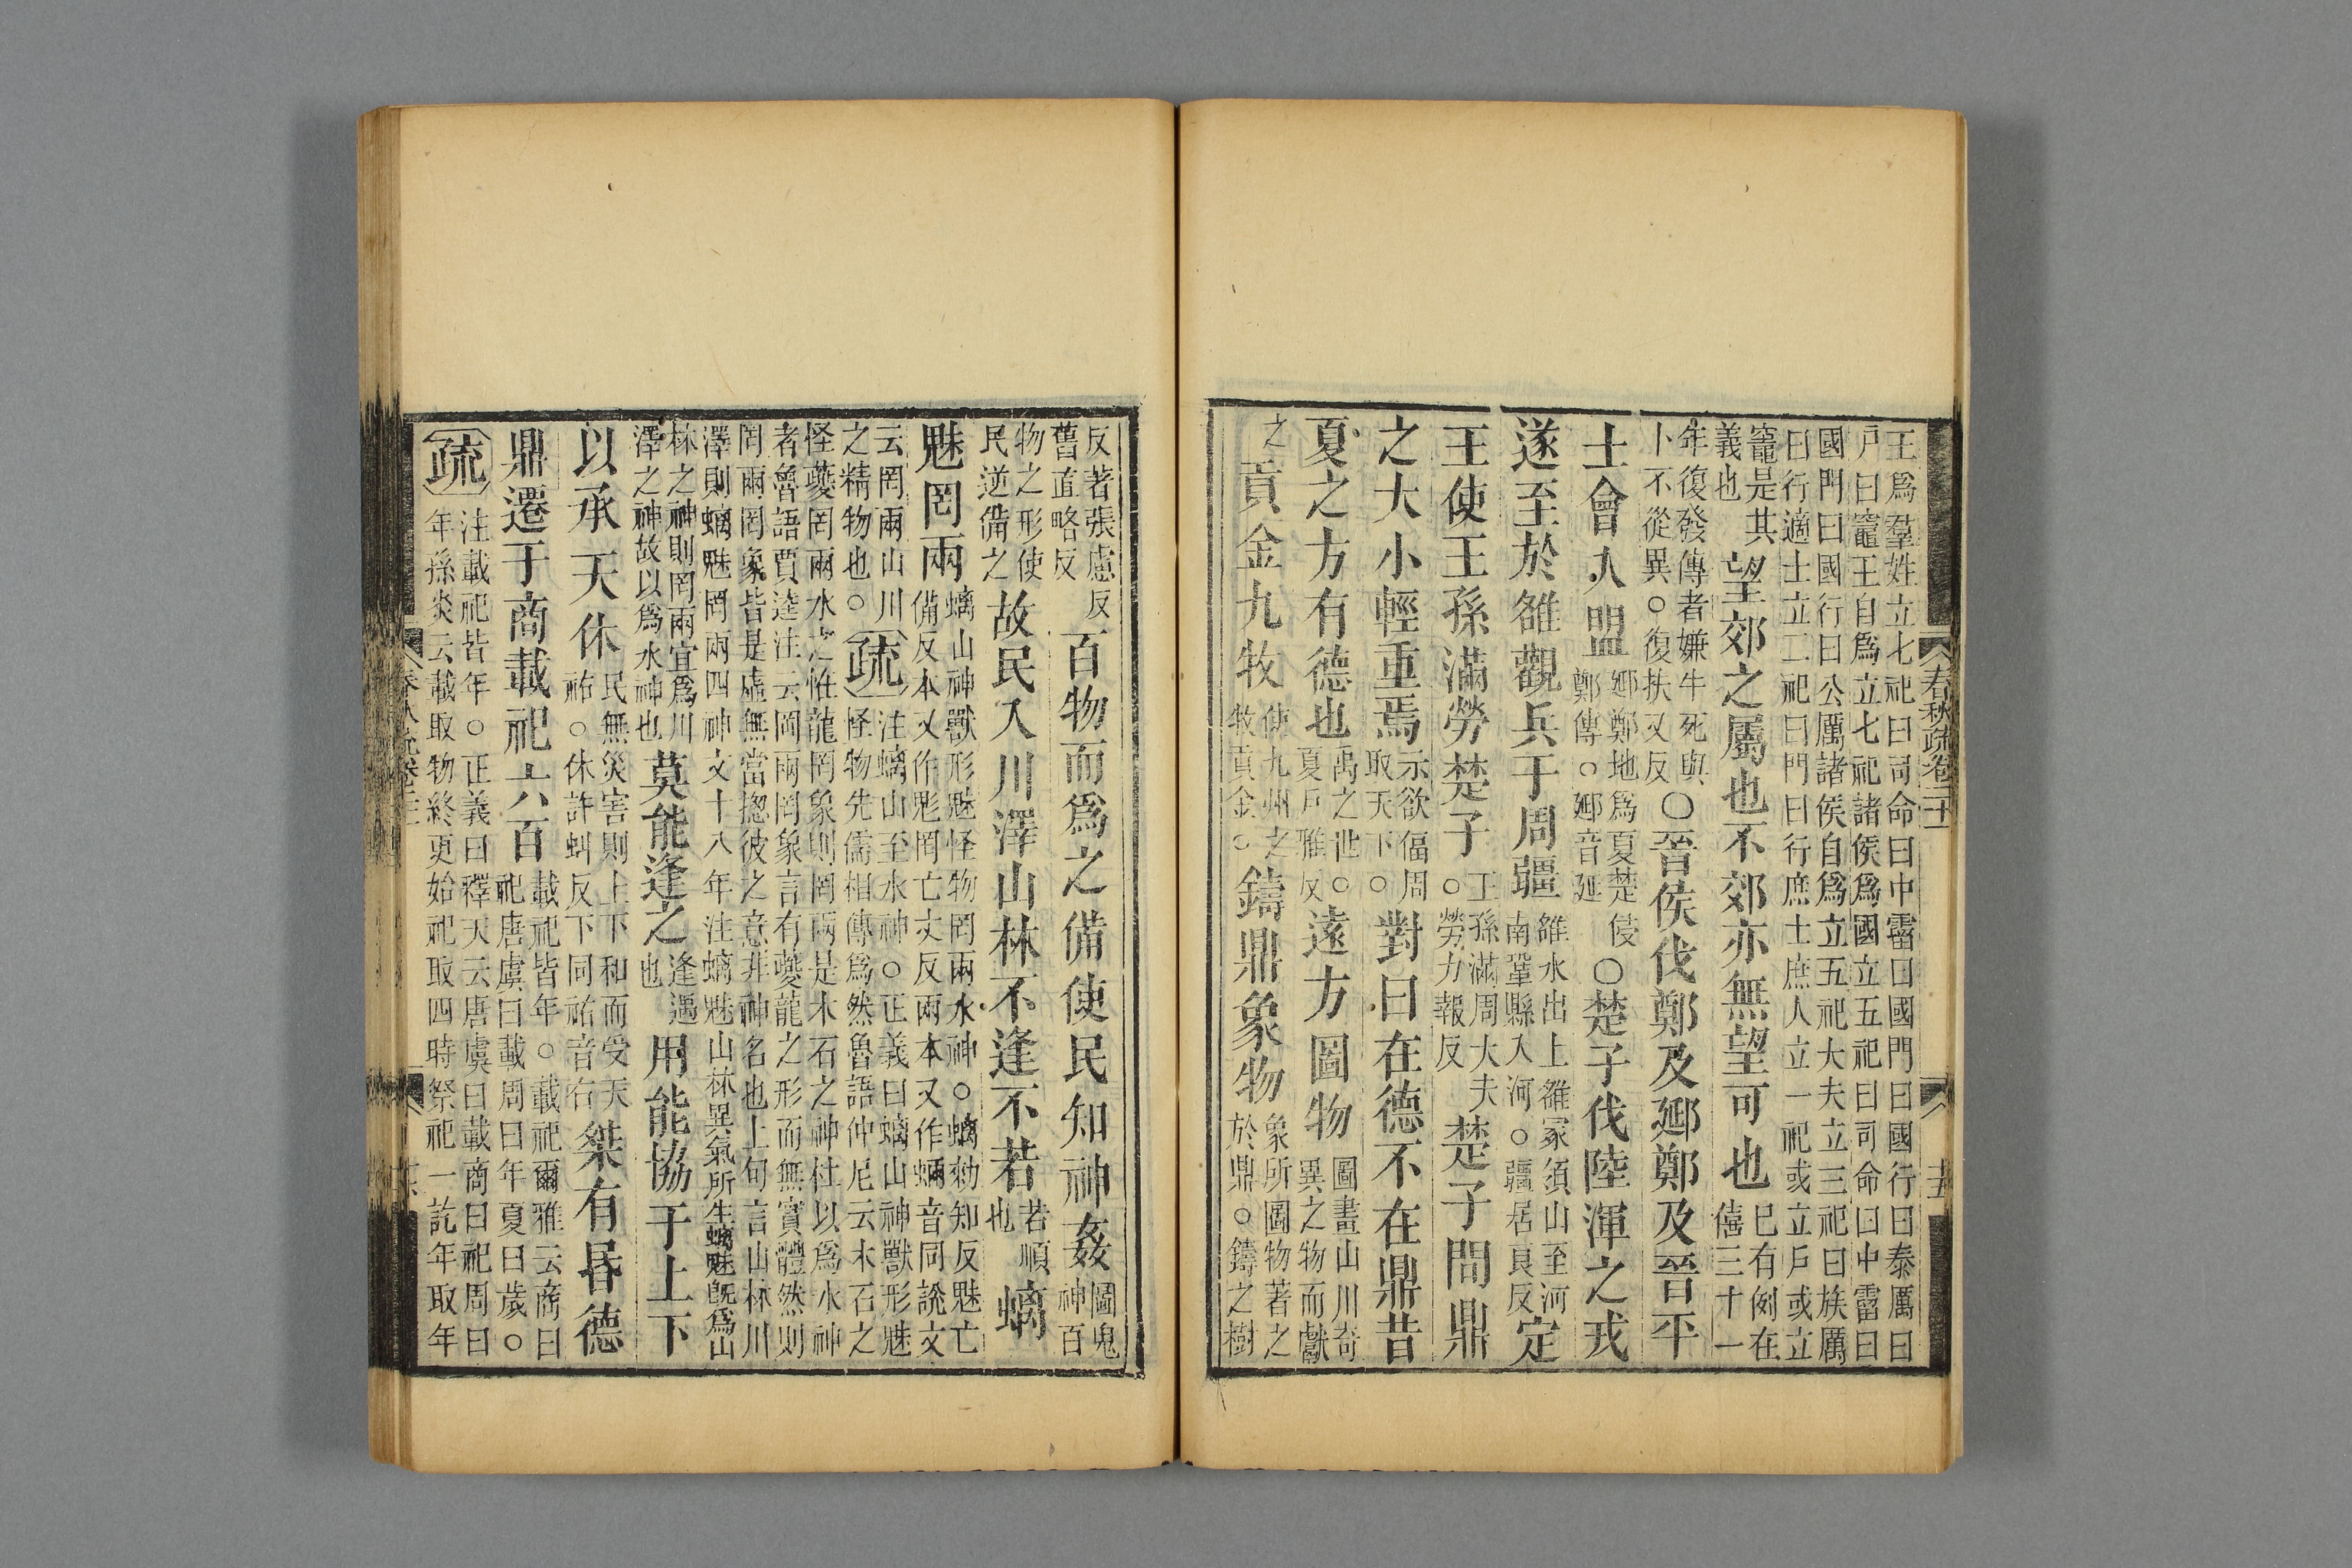 春秋疏卷二十一
十五
王爲羣姓立七祀曰司命曰中霤曰國門曰國行曰泰厲曰
戶曰竈王自爲立七祀諸侯爲國立五祀曰司命曰中霤曰
國門曰國行曰公厲諸侯自爲立五祀大夫立三祀曰族厲
曰行適士立二祀曰門曰行庶士庶人立一祀或立戶或立
竈是其
義也
望郊之屬也不郊亦無望可也
巳有例在
僖三十一
年復發傳者嫌牛死與
卜不從異○復扶又反
○晉侯伐鄭及郔鄭及晉平
士會入盟
郔鄭地爲夏楚侵
鄭傳○郔音延
○楚子伐陸渾之戎
遂至於雒觀兵于周疆
雒水出上雒冢須山至河
南鞏縣入河○疆居良反
定
王使王孫滿勞楚子
王孫滿周大夫
○勞力報反
楚子問鼎
之大小輕重焉
示欲偪周
取天下○
對曰在德不在鼎昔
夏之方有德也
禹之世○
夏戶雅反
遠方圖物
圖畫山川奇
異之物而獻
之
貢金九牧
使九州之
牧貢金○
鑄鼎象物
象所圖物著之
於鼎○鑄之樹
反著張慮反
舊直略反
百物而爲之備使民知神姦
圖鬼
神百
物之形使
民逆備之
故民入川澤山林不逢不若
若順
也
螭
魅罔兩
螭山神獸形魅怪物罔兩水神○螭勑知反魅亡
備反本又作鬽罔亡丈反兩本又作蜽音同說文
云罔兩山川
之精物也○
疏
注螭山至水神○正義曰螭山神獸形魅
怪物先儒相傳爲然魯語仲尼云木石之
怪夔罔兩水之怪龍罔象則罔兩是木石之神杜以爲水神
者魯語賈逵注云罔兩罔象言有夔龍之形而無實體然則
罔兩罔象皆是虛無當揔彼之意非神名也上句言山林川
澤則螭魅罔兩四神文十八年注螭魅山林異氣所生螭魅旣爲山
林之神則罔兩宜爲川
澤之神故以爲水神也
莫能逢之
逢遇
也
用能協于上下
以承天休
民無災害則上下和而受天
祐○休許虯反下同祐音右
桀有昏德
鼎遷于商載祀六百
載祀皆年○載祀爾雅云商曰
祀唐虞曰載周曰年夏曰歲○
疏
注載祀皆年○正義曰釋天云唐虞曰載商曰祀周曰
年孫炎云載取物終更始祀取四時祭祀一訖年取年